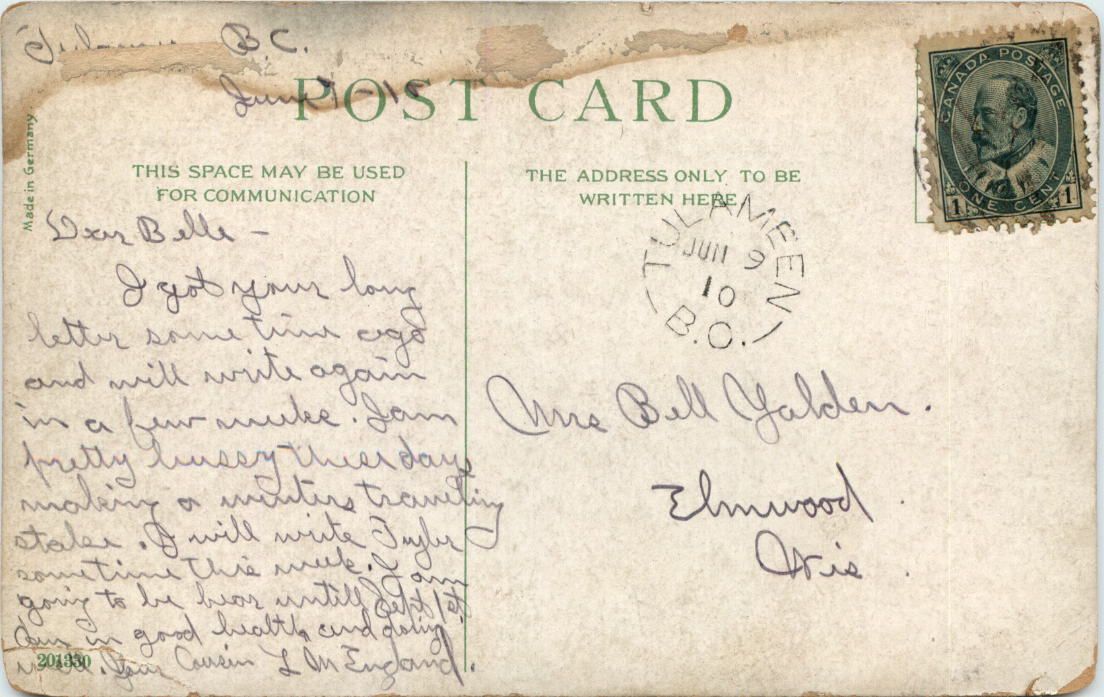 B.C.
June
POST CARD
Made in Germany
THIS SPACE MAY BE USED
FOR COMMUNICATION
THE ADDRESS ONLY TO BE
WRITTEN HERE
CANADA POSTAGE
ONE CENT
1 1
TULAMEEN
JUN 9
10
B.C.
Dear Belle -
I got your long
letter some time ago
and will write again
in a few weeks. I am
pretty bussy these days
making a winters traveling
stake. I will write
sometime this week. I am
going to be hear untill Sept 1st
am in good health and doing
well. Your Cousin L M England.
201330
Mrs Bell Yalden.
Elmwood
Wis